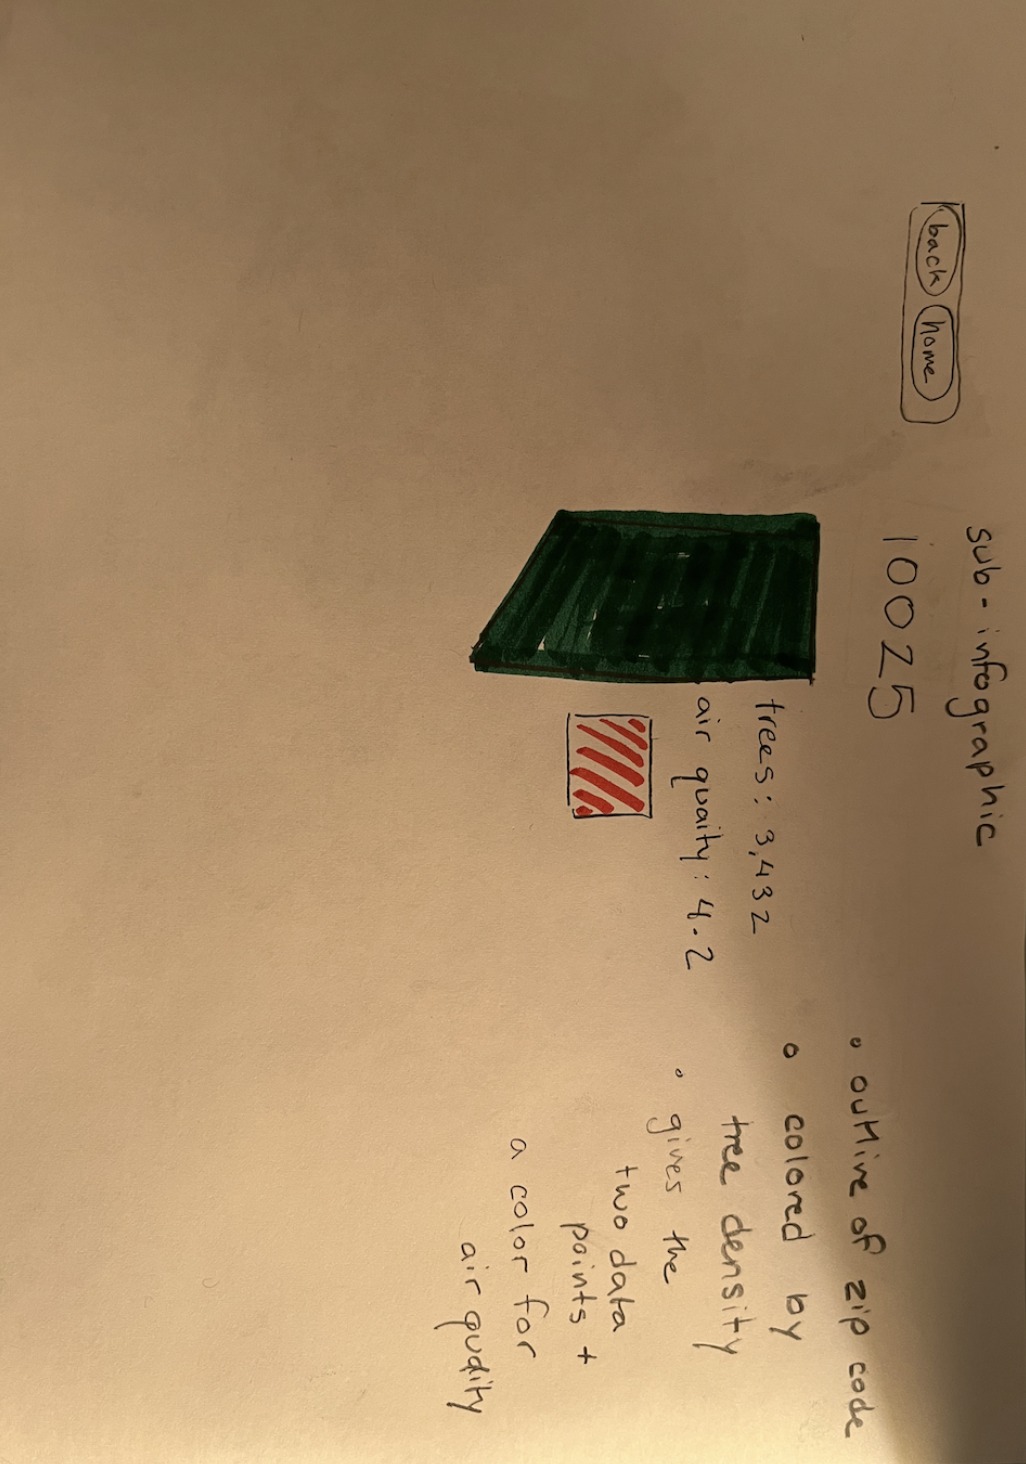 sub-infographic
back home
10025
trees: 3,432
air quaity: 4.2
outline of zip code
colored by
tree density
gives the
two data
points +
a color for
air quality